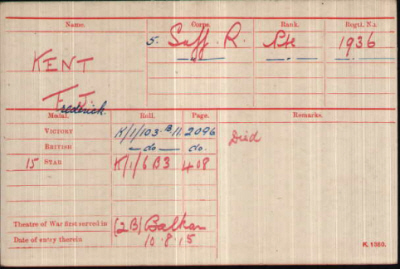 Name. Corps. Rank. Regtl. No.
5. Suff. R. Pte 1936
KENT
F. J.
Frederick.
Medal. Roll. Page. Remarks.
VICTORY K/1/103 B11 2096 Died
BRITISH — do — do.
15 STAR K/1/6 B3 408
Theatre of War first served in (2B) Balkan
Date of entry therein 10.8.15
K. 1380.